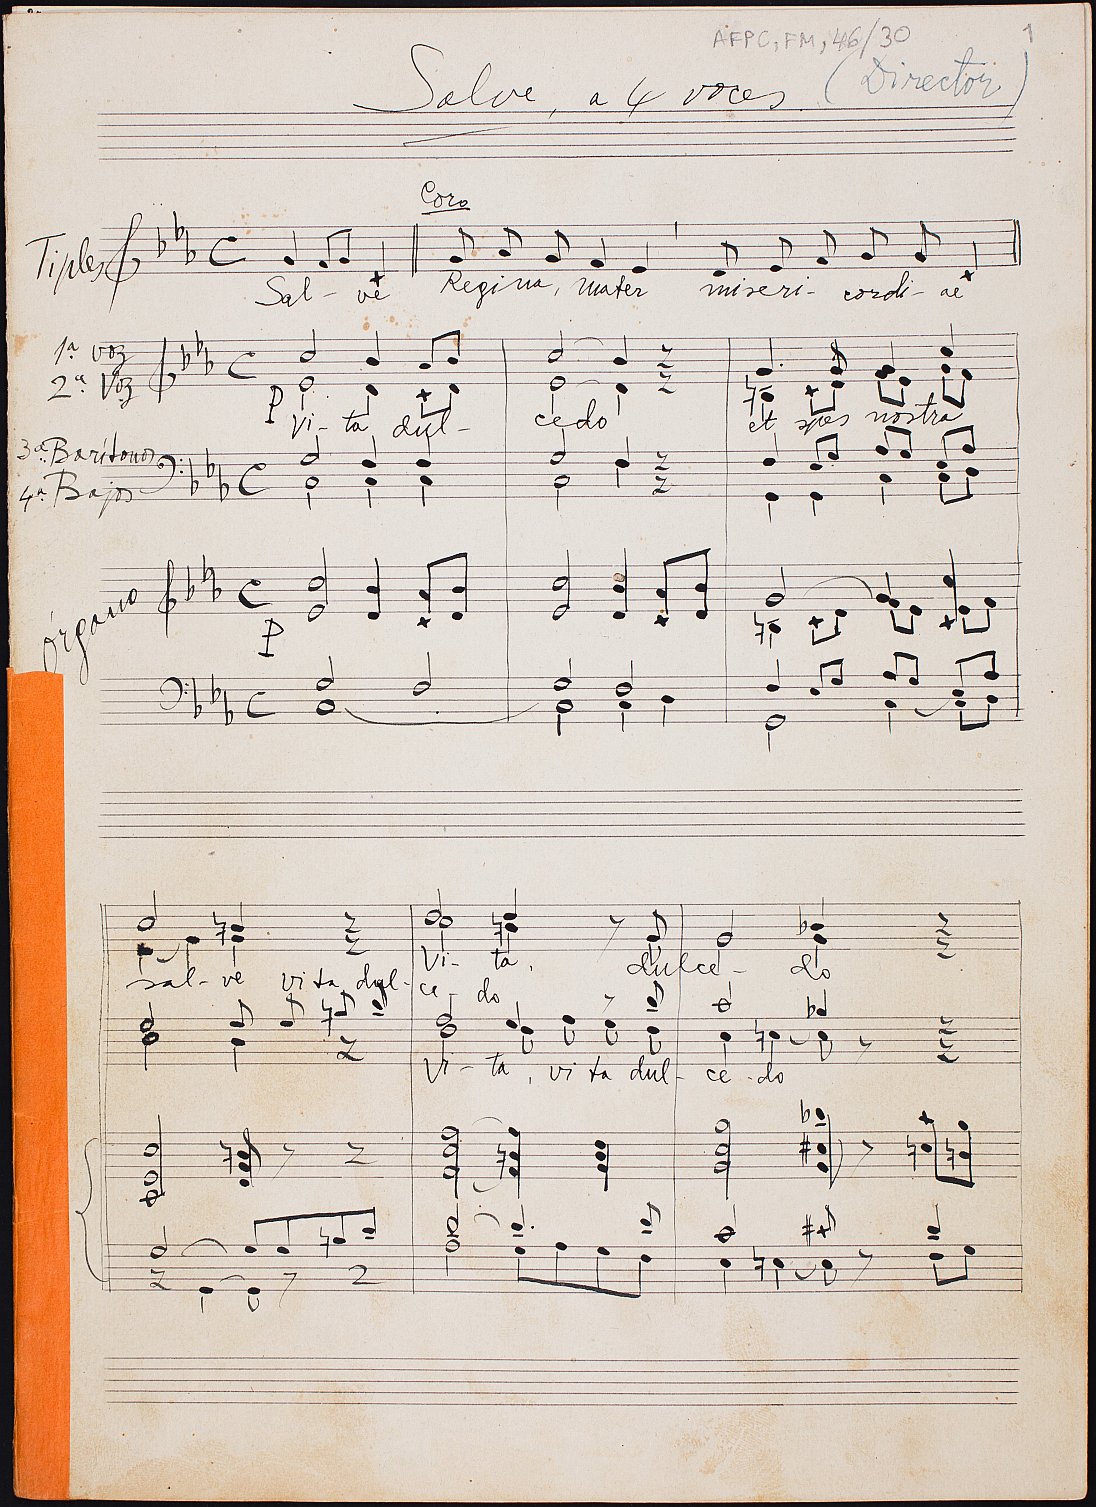 AFPC, FM, 46/30 1
Salve, a 4 voces. (Director)
Coro
Tiples
Sal- ve Regina, mater miseri- cordi- ae
1ª voz
2ª Voz
P
Vi- ta dul- cedo et spes nostra
3ª Barítonos
4ª Bajos
órgano
P
Vi- ta, dulce- do
sal- ve vita dul- ce- do
Vi- ta, vita dul- ce- do